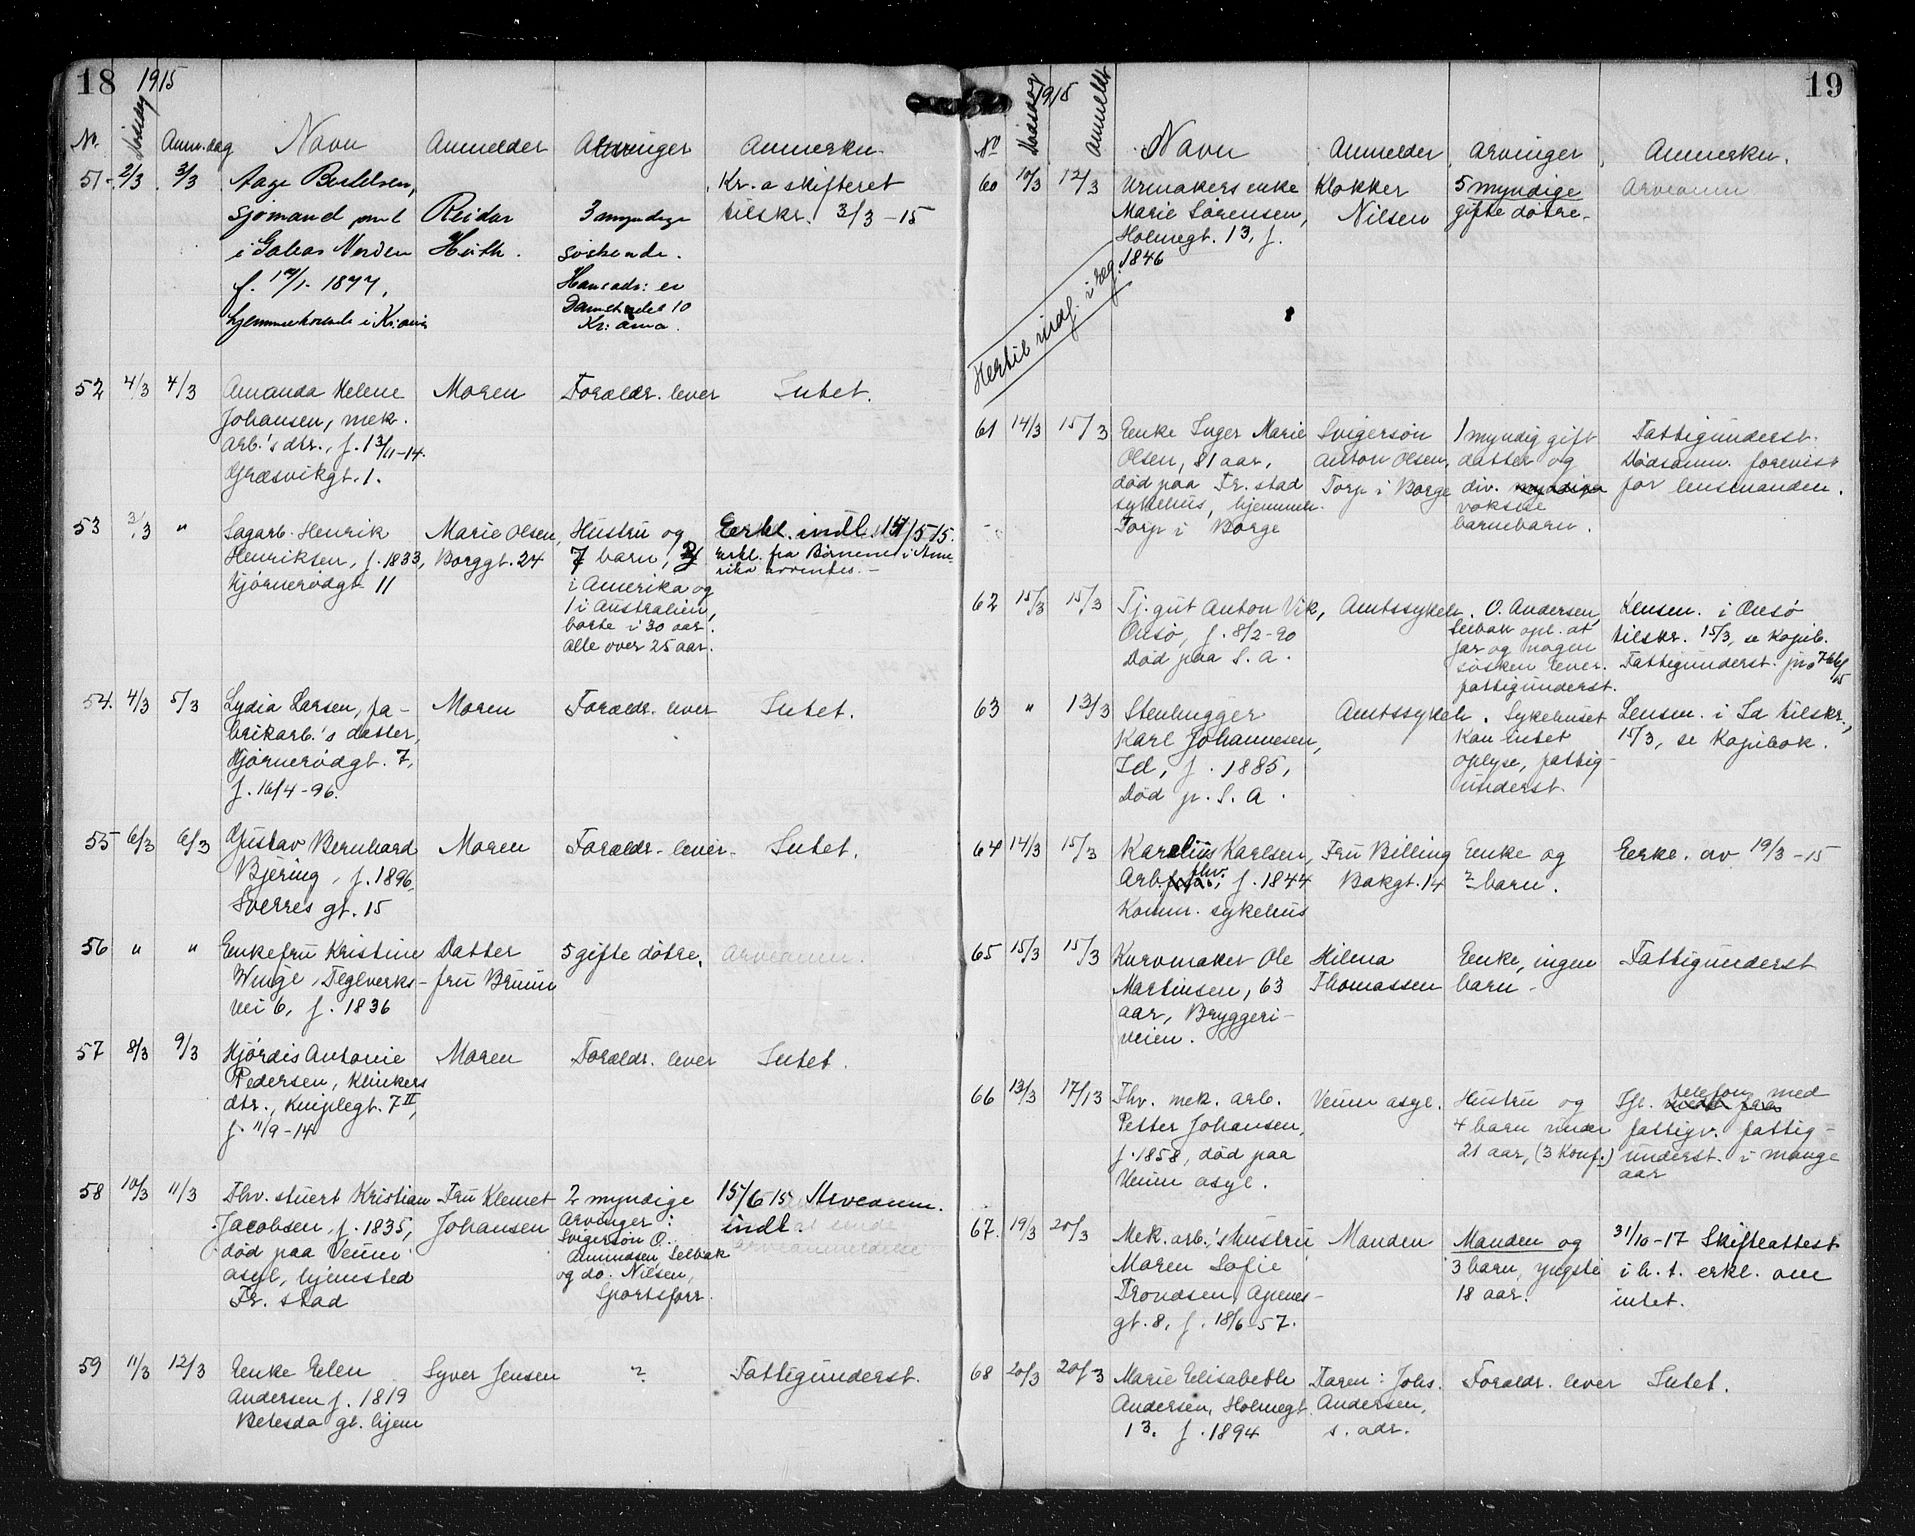 18 1915
No. Dødsdag Anm.dag Navn Anmelder Arvinger Anmerkn.
51. 2/3 3/3 Aage Bertelsen, Kr.a skifteret
sjømand Reidar 3 umyndige tilskr. 3/3-15
i Verden Huth. søskende.
f. 1877, Hans adr: er
hjemmehørende i Kr.ania Damstredet 10
Kr: ania.
52 4/3 4/3 Amanda Helene Moren Forældr. lever Intet.
Johansen, mek.
arb.'s dtr., f. 13/11-14.
Græsvikgt. 1.
53 3/3 " Sagarb. Henrik Marie Olsen, Hustru og Erkl. indl. 15/5 15.
Henriksen, f. 1833, Borggt. 24 7 barn, 2 Erkl. fra Børnene i Ame-
Hjørnerødgt 11 i Amerika og rika ventes.-
1 i Australien,
borte i 30 aar.
Alle over 25 aar.
54. 4/3 5/3 Lydia Larsen, fa- Moren Forældr. lever Intet.
brikarb.'s datter,
Hjørnerødgt. 7,
f. 16/4-96.
55 6/3 6/3 Gustav Bernhard Moren Forældr. lever- Intet.
Bjering, f. 1896
Sverres gt. 15
56 " " Enkefru Kristine Datter 5 gifte døtre. Arveanm.
Winge, Teglverks- fru Bruun
vei 6, f. 1836
57 8/3 9/3 Hjørdis Antonie Moren Forældr. lever Intet.
Pedersen, Klinkers
dtr., Kniplegt. 7 II,
f. 11/9-14
58 10/3 11/3 Fhv. stuert Kristian Fru Klemet 2 myndige 15/6 15 Arveanm.
Jacobsen, f. 1835, Johansen Arvinger: indl.
død paa Veum Svigersøn O. arveanmeldelse
asyl, hjemsted Amundsen, Selbak
Fr. stad og do. Nilsen,
Sportsforr.
59 11/3 12/3 Enke Elen Syver Jensen ? Fattigunderst.
Andersen f. 1819
Betesda gl. hjem
1915 19
No Dødsdag Anmeldt Navn Anmelder Arvinger Anmerkn.
60 10/3 12/3 Urmakers enke Klokker 5 myndige Arveanm
Marie Sørensen, Nilsen gifte døtre.
Holmegt. 13, f.
1846
Hertil indf. i reg.
61 14/3 15/3 Enke Inger Marie Svigersøn 1 myndig gift Fattigunderst.
Olsen, 81 aar, Anton Olsen, datter og Dødsanm. forevist
død paa Fr. stad Torp i Borge div. myndige for lensmanden.
sykehus, hjemmeh. voksne
Torp i Borge barnebarn.
62 15/3 15/3 Tj.gut Anton Vik, Amtssykeh. O. Andersen, Lensm. i Onsø
Onsø, f. 8/2-90 Selbak opl. at tilskr. 15/3, se Kopib.
Død paa S. A. far og nogen Fattigunderst. jno 766/15
søsken lever.
fattigunderst.
63 " 13/3 Stenhugger Amtssykeh. Sykehuset Lensm. i Id tilskr.,
Karl Johannesen, Kan intet 15/3, se Kopibok.
Id, f. 1885, oplyse, fattig-
Død p. S. A. underst.
64 14/3 15/3 Karelius Karlsen, Fru Billing Enke og Erkl. av 19/3-15
Arb. fhv., f. 1844 Bakgt. 14 ? barn.
Komm. sykehus
65 15/3 15/3 Kurvmaker Ole Hilma Enke, ingen Fattigunderst
Martinsen, 63 Thomassen barn.
aar, Bryggeri-
veien.
66 13/3 17/13 Fhv. mek. arb. Veum asyl. Hustru og Ifl. telefon med
Petter Johansen, 4 barn under fattigv. fattig-
f. 1858, død paa 21 aar, (3 Konf.) underst. i mange
Veum asyl. aar
67. 19/3 20/3 Mek. arb.'s Hustru Manden Manden og 31/10-17 Skifteattest
Maren Sofie 3 barn, yngste i h. t. erkl. om
Trondsen, Apenes- 18 aar. intet.
gt. 8, f. 18/6-57.
68 20/3 20/3 Marie Elisabeth Faren: Johs. Forældr. lever Intet.
Andersen, Holmegt. Andersen,
13. f. 1894 s. adr.